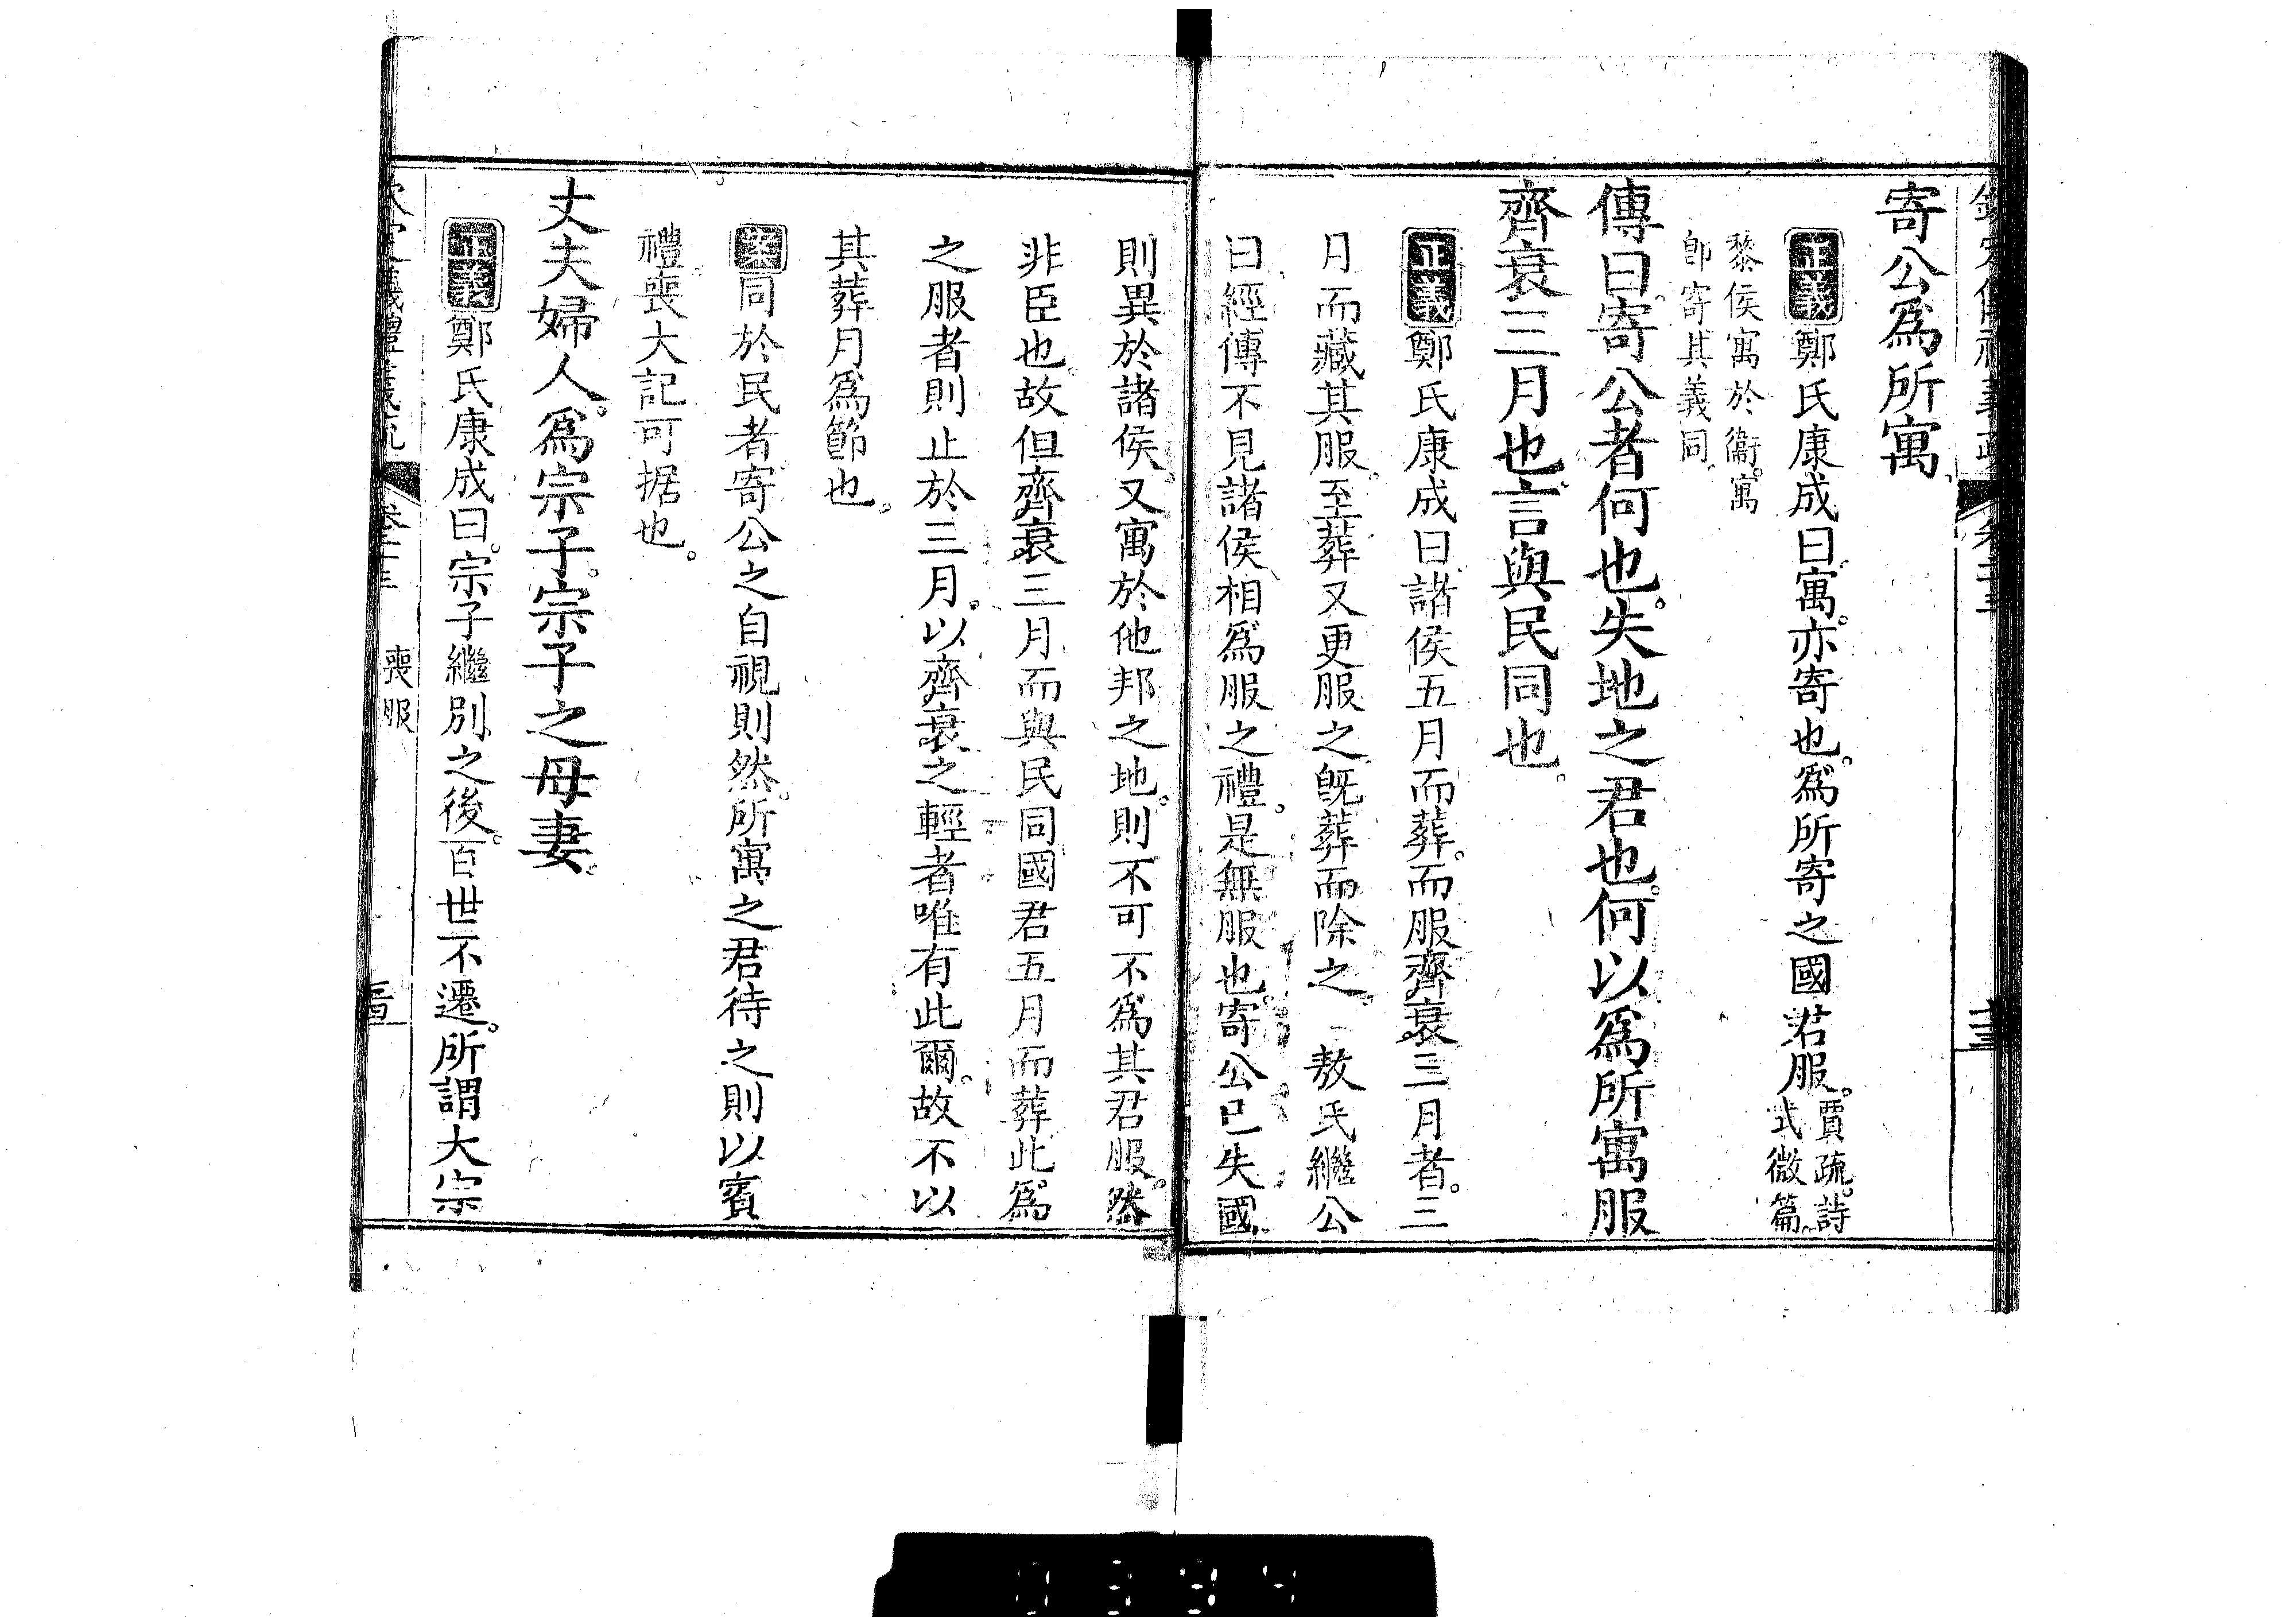 寄公爲所寓
正義鄭氏康成曰寓。亦寄也。爲所寄之國君服。賈疏。詩
式微篇。
黎侯寓於衞。寓
卽寄。其義同。
傳曰。寄公者何也。失地之君也。何以爲所寓服
齊衰三月也。言與民同也。
正義鄭氏康成曰諸侯五月而葬。而服齊衰三月者。三
月而藏其服。至葬又更服之。旣葬而除之。 敖氏繼公
曰。經傳不見諸侯相爲服之禮。是無服也。寄公已失國。
則異於諸侯。又寓於他邦之地。則不可不爲其君服。然
非臣也。故但齊衰三月而與民同。國君五月而葬此爲
之服者則止於三月。以齊衰之輕者唯有此爾。故不以
其葬月爲節也。
案同於民者寄公之自視則然。所寓之君待之則以賓
禮。喪大記可据也。
丈夫婦人。爲宗子。宗子之母妻。
正義鄭氏康成曰。宗子繼別之後。百世不遷。所謂大宗
喪服